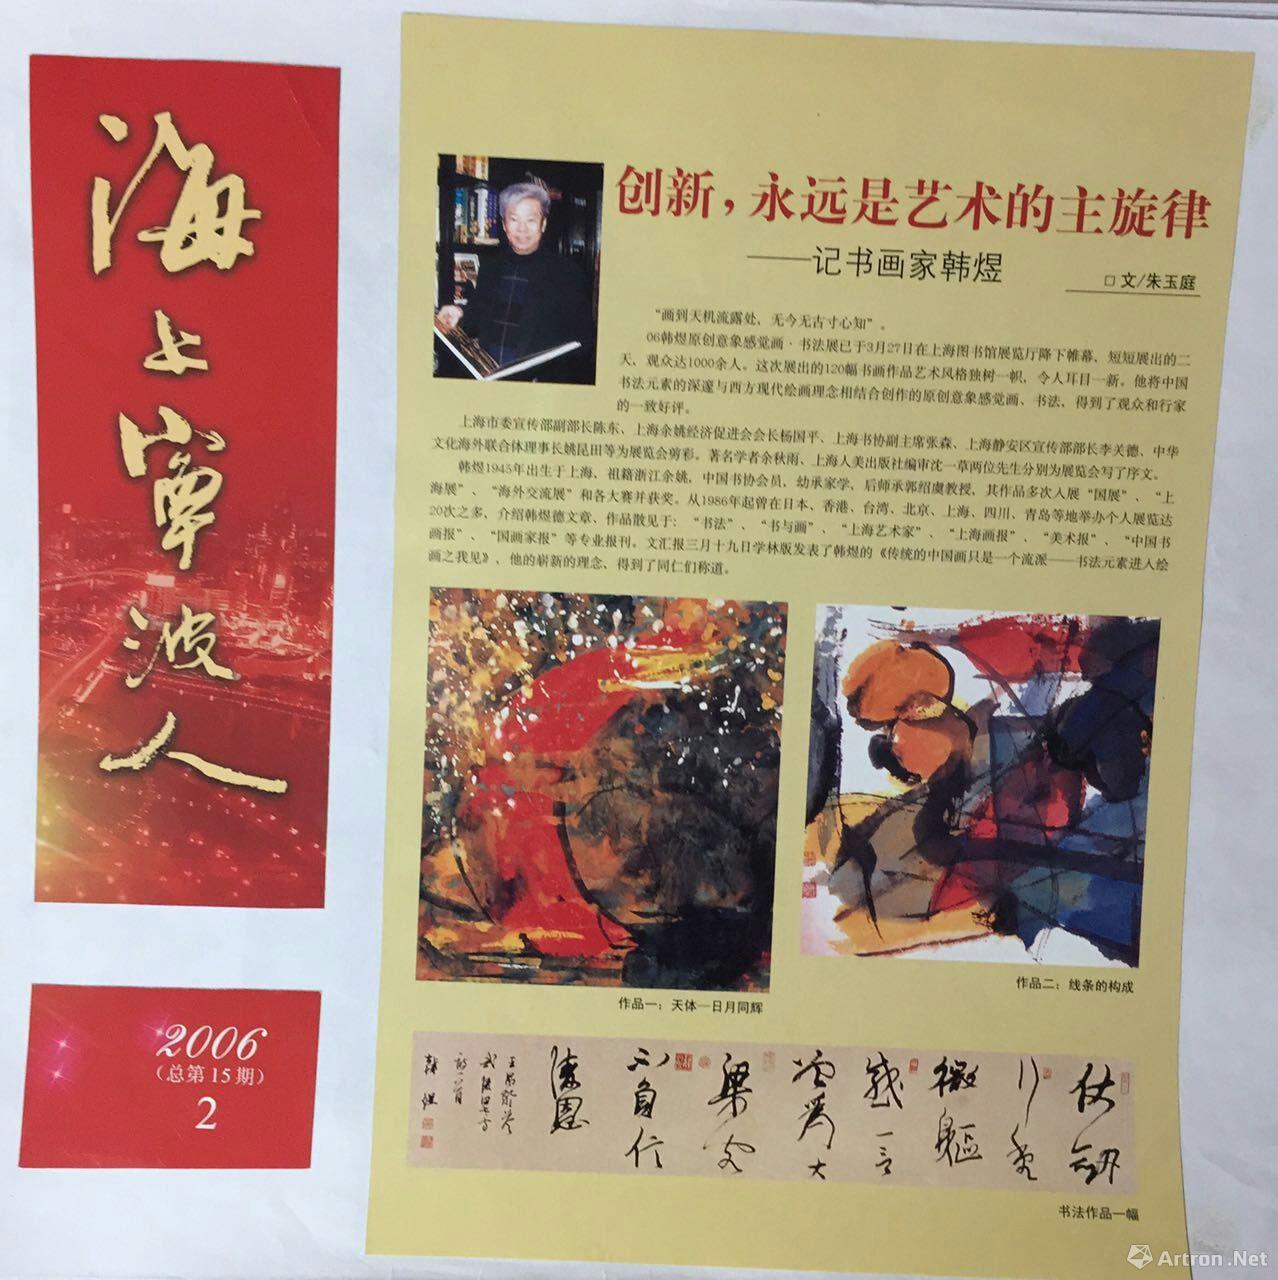 海上寧波人
2006
（总第15期）
2
创新，永远是艺术的主旋律
——记书画家韩煜
□ 文/朱玉庭
“画到天机流露处，无今无古寸心知”。
06韩煜原创意象感觉画·书法展已于3月27日在上海图书馆展览厅降下帷幕，短短展出的二
天，观众达1000余人。这次展出的120幅书画作品艺术风格独树一帜，令人耳目一新。他将中国
书法元素的深邃与西方现代绘画理念相结合创作的原创意象感觉画、书法，得到了观众和行家
的一致好评。
上海市委宣传部副部长陈东、上海余姚经济促进会会长杨国平、上海书协副主席张森、上海静安区宣传部部长李关德、中华
文化海外联合体理事长姚昆田等为展览会剪彩。著名学者余秋雨、上海人美出版社编审沈一草两位先生分别为展览会写了序文。
韩煜1945年出生于上海，祖籍浙江余姚，中国书协会员，幼承家学，后师承郭绍虞教授，其作品多次入展“国展”、“上
海展”、“海外交流展”和各大赛并获奖。从1986年起曾在日本、香港、台湾、北京、上海、四川、青岛等地举办个人展览达
20次之多，介绍韩煜德文章、作品散见于：“书法”、“书与画”、“上海艺术家”、“上海画报”、“美术报”、“中国书
画报”、“国画家报”等专业报刊。文汇报三月十九日学林版发表了韩煜的《传统的中国画只是一个流派——书法元素进入绘
画之我见》，他的崭新的理念，得到了同仁们称道。
作品一：天体—日月同辉
作品二：线条的构成
仗劒
行千
微軀
感一言
大
不自信
陵恩
书法作品一幅
Artron.Net